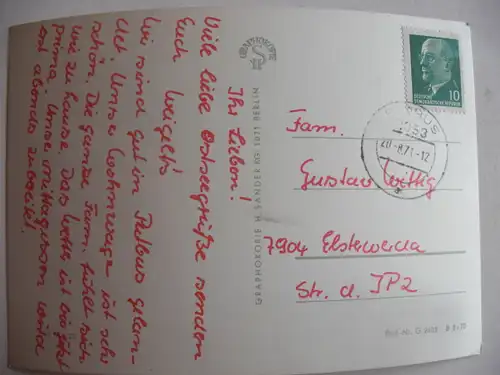 Ihr Lieben!
Viele liebe Ostseegrüße senden
Euch Weigels
Wir sind gut in Putbus gelan-
det. Unser Wohnwagen ist sehr
schön. Die ganze Fam. fühlt sich
wie zu Hause. Das Wetter ist bis jetzt
prima. Unser Mittagessen wird
erst abends zubereitet.
GRAPHOKOPIE
GRAPHOKOPIE H. SANDER KG 1071 BERLIN
10
DEUTSCHE
DEMOKRATISCHE REPUBLIK
BUS
20.-8.71.-12
Fam.
Gustav Wittig
7904 Elsterwerda
Str. d. JP2